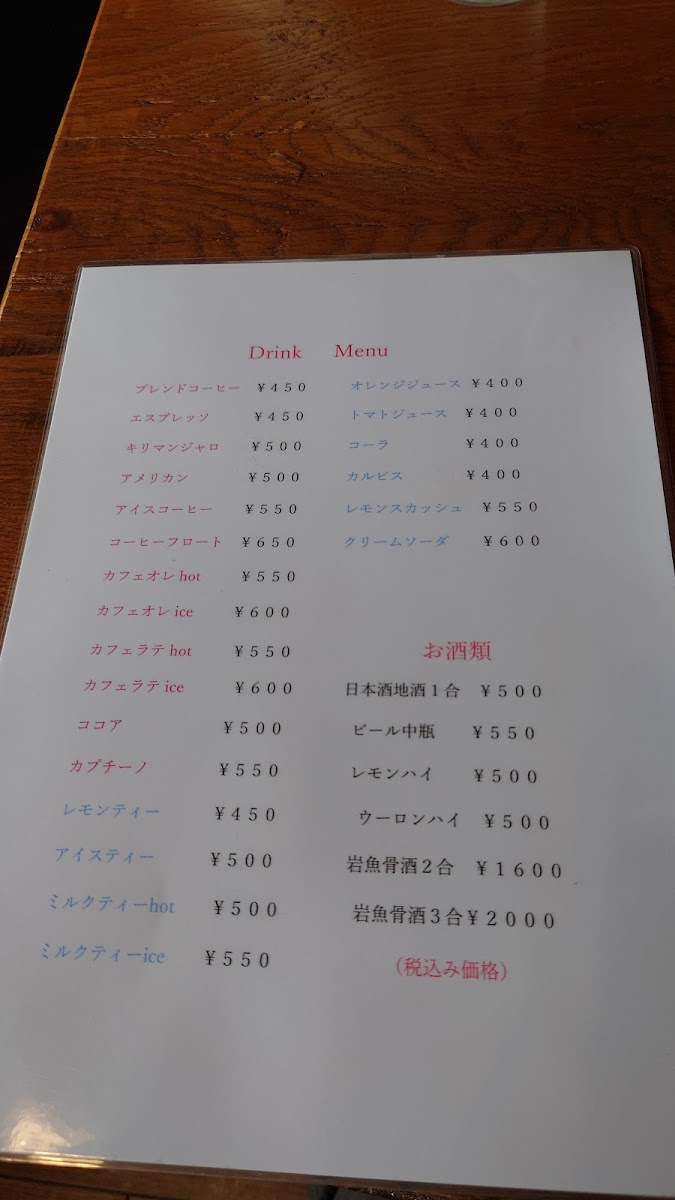 Drink Menu
ブレンドコーヒー ￥４５０
エスプレッソ ￥４５０
キリマンジャロ ￥５００
アメリカン ￥５００
アイスコーヒー ￥５５０
コーヒーフロート ￥６５０
カフェオレ hot ￥５５０
カフェオレ ice ￥６００
カフェラテ hot ￥５５０
カフェラテ ice ￥６００
ココア ￥５００
カプチーノ ￥５５０
レモンティー ￥４５０
アイスティー ￥５００
ミルクティーhot ￥５００
ミルクティーice ￥５５０
オレンジジュース ￥４００
トマトジュース ￥４００
コーラ ￥４００
カルピス ￥４００
レモンスカッシュ ￥５５０
クリームソーダ ￥６００
お酒類
日本酒地酒１合 ￥５００
ビール中瓶 ￥５５０
レモンハイ ￥５００
ウーロンハイ ￥５００
岩魚骨酒２合 ￥１６００
岩魚骨酒３合￥２０００
（税込み価格）